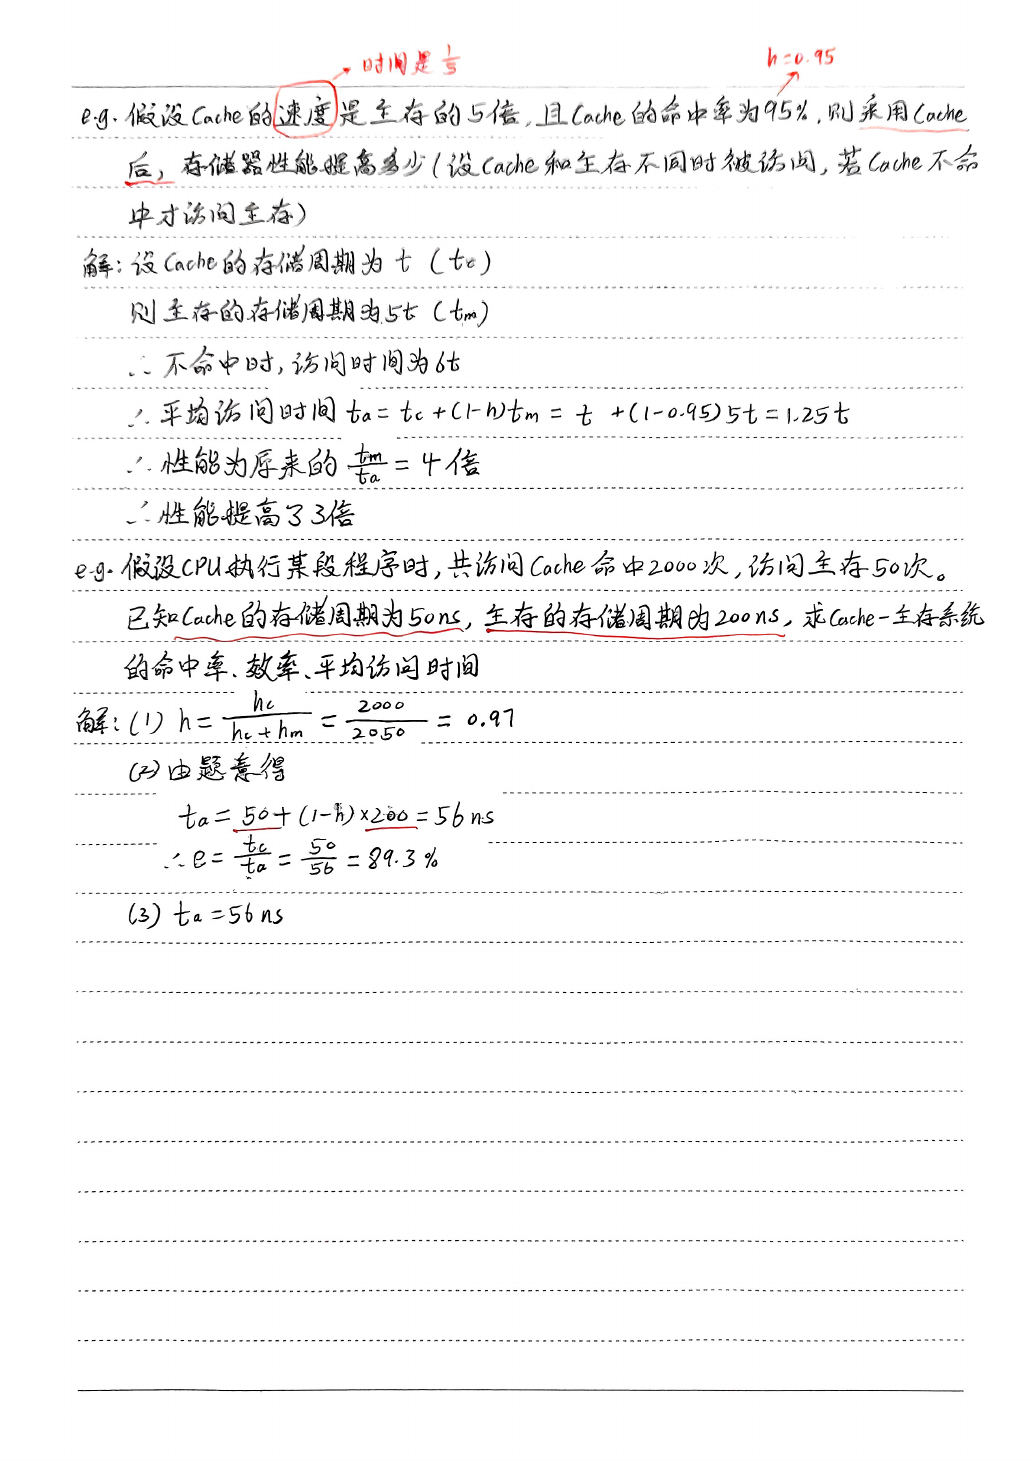 时间是1/5
h=0.95
e.g. 假设Cache的速度是主存的5倍,且Cache的命中率为95%,则采用Cache
后,存储器性能提高多少(设Cache和主存不同时被访问,若Cache不命
中才访问主存)
解:设Cache的存储周期为 t (tc)
则主存的存储周期为5t (tm)
∴ 不命中时,访问时间为6t
∴ 平均访问时间 ta = tc + (1-h)tm = t + (1-0.95)5t = 1.25t
∴ 性能为原来的 tm/ta = 4倍
∴ 性能提高了3倍
e.g. 假设CPU执行某段程序时,共访问Cache命中2000次,访问主存50次。
已知Cache的存储周期为50ns,主存的存储周期为200ns,求Cache-主存系统
的命中率、效率、平均访问时间
解:(1) h = hc/(hc+hm) = 2000/2050 = 0.97
(2) 由题意得
ta = 50+(1-h)×200 = 56ns
∴ e = tc/ta = 50/56 = 89.3%
(3) ta = 56ns